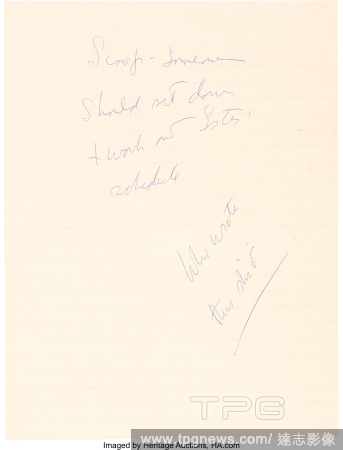 Scoop - someone
should sit down
+ work out
schedule
Who wrote
this
TPG
Imaged by Heritage Auctions, HA.com
www.tpgnews.com / 達志影像